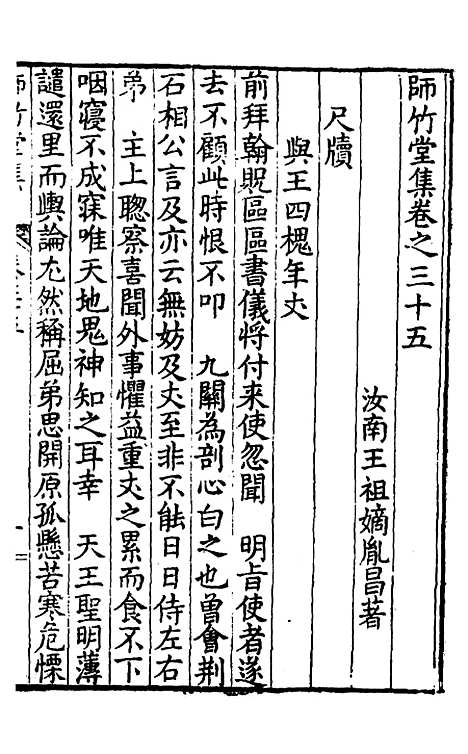 師竹堂集卷之三十五
汝南王祖嫡胤昌著
尺牘
與王四槐年丈
前拜翰貺區區書儀將付来使忽聞　明旨使者遂
去不顧此時恨不叩　九關為剖心白之也曾會荆
石相公言及亦云無妨及丈至非不能日日侍左右
弟　主上聰察喜聞外事懼益重丈之累而食不下
咽寢不成寐唯天地鬼神知之耳幸　天王聖明薄
譴還里而輿論尤然稱屈弟思開原孤懸苦寒危慄
師竹堂集